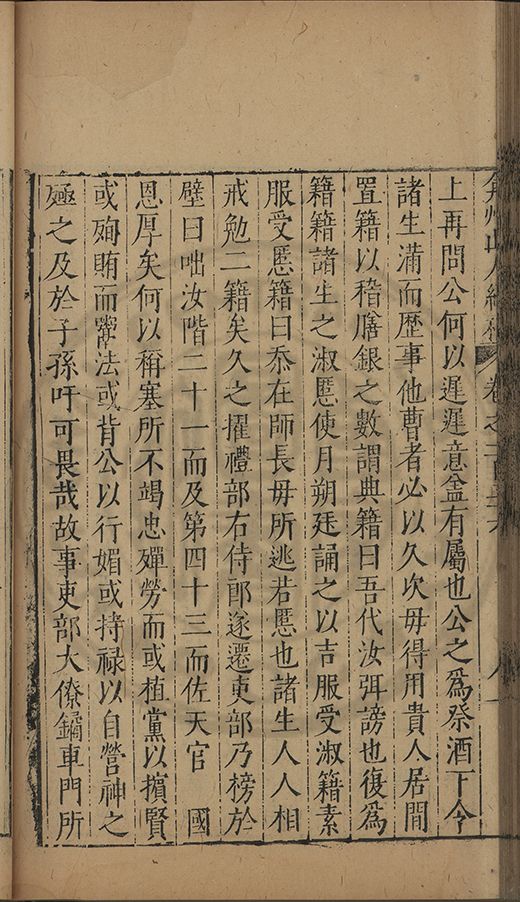 弇州山人續稿 卷之一百三十六 八
上再問公何以遲遲意盖有屬也公之爲祭酒下令
諸生滿而歷事他曹者必以久次毋得用貴人居間
置籍以稽膳銀之數謂典籍曰吾代汝弭謗也復爲
籍籍諸生之淑慝使月朔廷誦之以吉服受淑籍素
服受慝籍曰忝在師長毋所逃若慝也諸生人人相
戒勉二籍矣久之擢禮部右侍郎遂遷吏部乃榜於
壁曰咄汝階二十一而及第四十三而佐天官 國
恩厚矣何以稱塞所不竭忠殫勞而或植黨以擯賢
或殉賄而鬻法或背公以行媚或持禄以自營神之
殛之及於子孫吁可畏哉故事吏部大僚鐍車門所